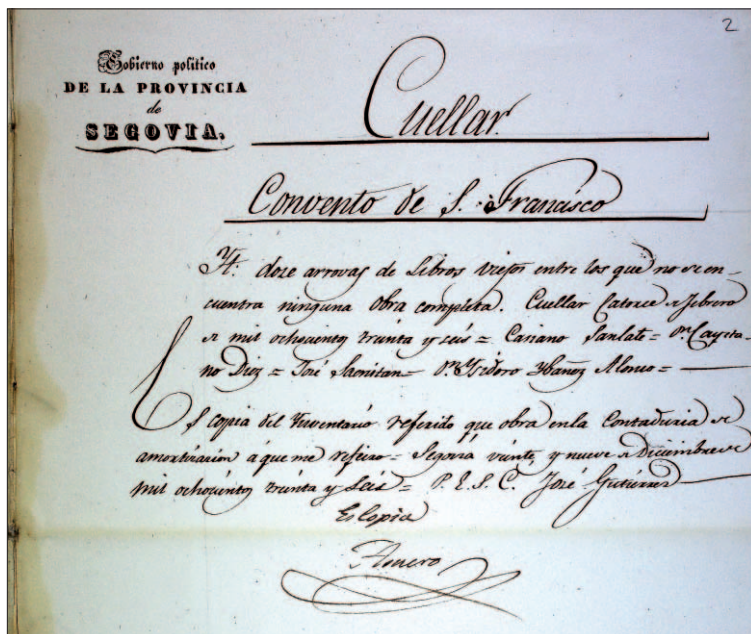 2
Gobierno político
DE LA PROVINCIA
de
SEGOVIA.
Cuellar.
Convento de S. Francisco
Yt. doze arrovas de Libros viejos entre los que no se en-
cuentra ninguna obra completa. Cuellar Catorce de febrero
de mil ochocientos treinta y seis = Sanlate = Dn. Cayeta-
no Diez = José = Dn. Ysidoro Ybañez Alonso =
Es copia del Ynventario referido que obra en la Contaduria de
amortizacion á que me refiero = Segovia veinte y nueve de Diciembre de
mil ochocientos treinta y seis = P. E. S. C. José Gutiérrez
Es Copia